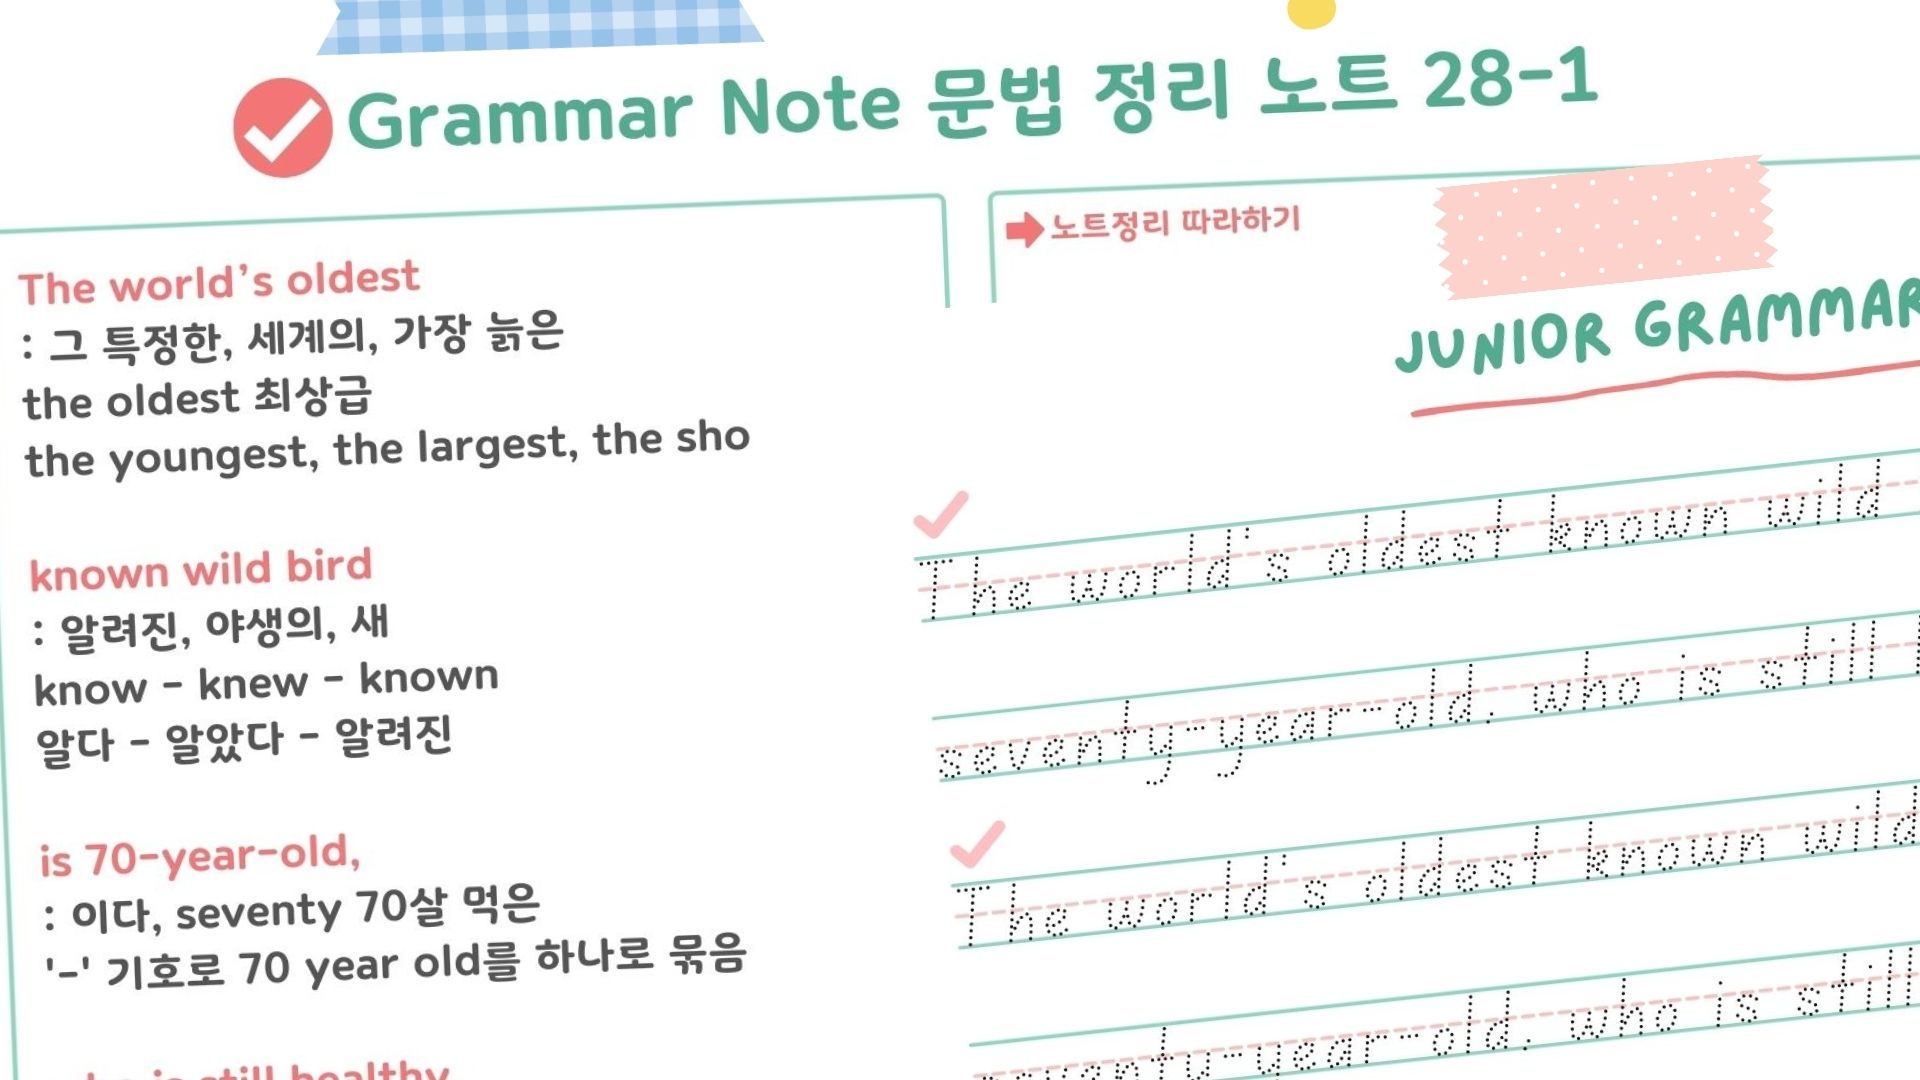 Grammar Note 문법 정리 노트 28-1
The world's oldest
: 그 특정한, 세계의, 가장 늙은
the oldest 최상급
the youngest, the largest, the sho
known wild bird
: 알려진, 야생의, 새
know - knew - known
알다 - 알았다 - 알려진
is 70-year-old,
: 이다, seventy 70살 먹은
'-' 기호로 70 year old를 하나로 묶음
is still healthy
노트정리 따라하기
JUNIOR GRAMMAR
The world's oldest known wild
seventy-year-old, who is still
The world's oldest known wild
seventy-year-old, who is still